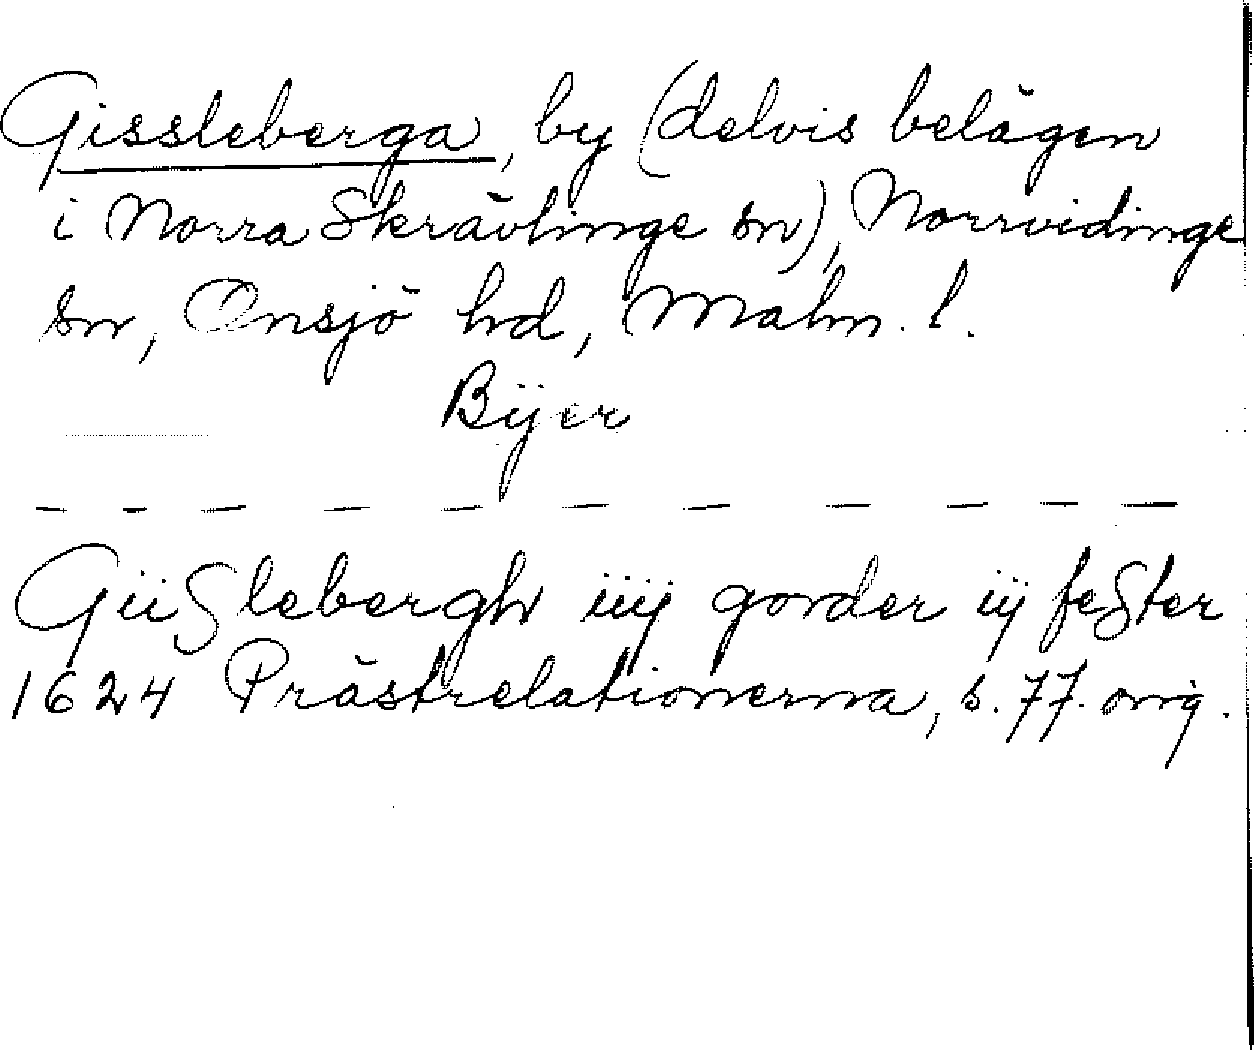 Gissleberga, by (delvis belägen
i Norra Skrävlinge sn), Norrvidinge
sn, Onsjö hd, Malm. l.
Bÿer
Giislebergh iiij gorder ij fester
1624 Prästrelationerna, s. 77. orig.